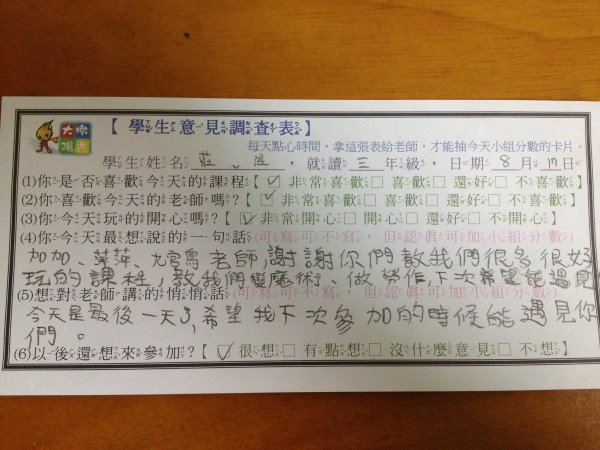 大衆陽光
【學生意見調查表】
每天點心時間，拿這張表給老師，才能抽今天小組分數的卡片。
學生姓名 莊，就讀 三 年級，日期 8 月 17 日
(1)你是否喜歡今天的課程【☑非常喜歡□ 喜歡□ 還好□ 不喜歡】
(2)你喜歡今天的老師嗎?【☑非常喜歡□ 喜歡□ 還好□ 不喜歡】
(3)你今天玩的開心嗎?【☑非常開心□ 開心□ 還好□ 不開心】
(4)你今天最想說的一句話(可寫可不寫，但認真可加小組分數)
加加、萍萍、老師謝謝你們教我們很多很好
玩的課程，教我們變魔術、做勞作，下次希望能遇見
(5)想對老師講的悄悄話(可寫可不寫，但認真可加小組分數)
今天是最後一天了，希望我下次參加的時候能遇見你
們。
(6)以後還想來參加?【☑很想□ 有點想□ 沒什麼意見□ 不想】